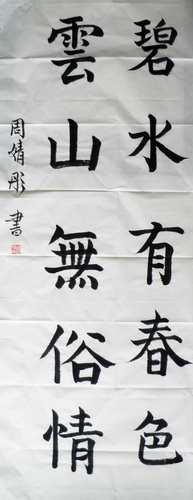 碧水有春色
雲山無俗情
周婧彤 書